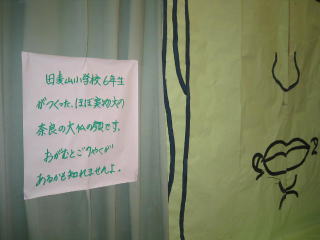 田麦山小学校6年生
がつくった、ほぼ実物大の
奈良の大仏の顔です。
おがむとごりやくが
あるかも知れませんよ。